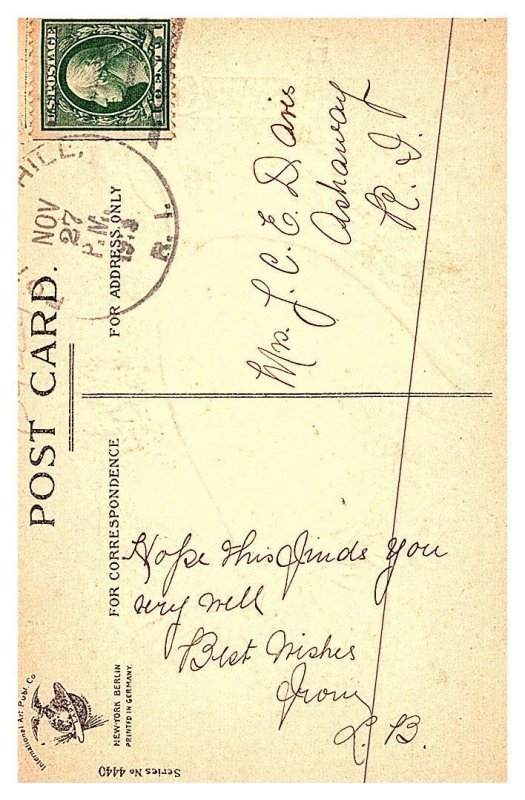 POST CARD.
FOR CORRESPONDENCE
FOR ADDRESS ONLY
U.S. POSTAGE
1 CENT 1
HILL,
NOV
27
P.M.
R. I.
Mrs. J. C. E. Davis
Ashaway
R. I
Hope this finds you
very well
Best Wishes
From
L. B.
International Art Publ Co
NEW-YORK BERLIN
PRINTED IN GERMANY.
Series No 4440